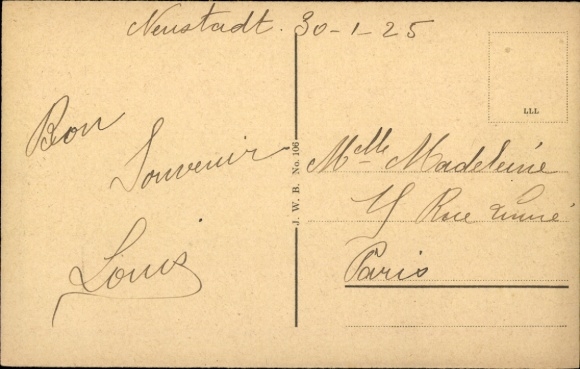 Neustadt. 30-1-25
Bon
Souvenir
Louis
J. W. B. No. 106
LLL
Melle Madeleine
Rue Linné
Paris